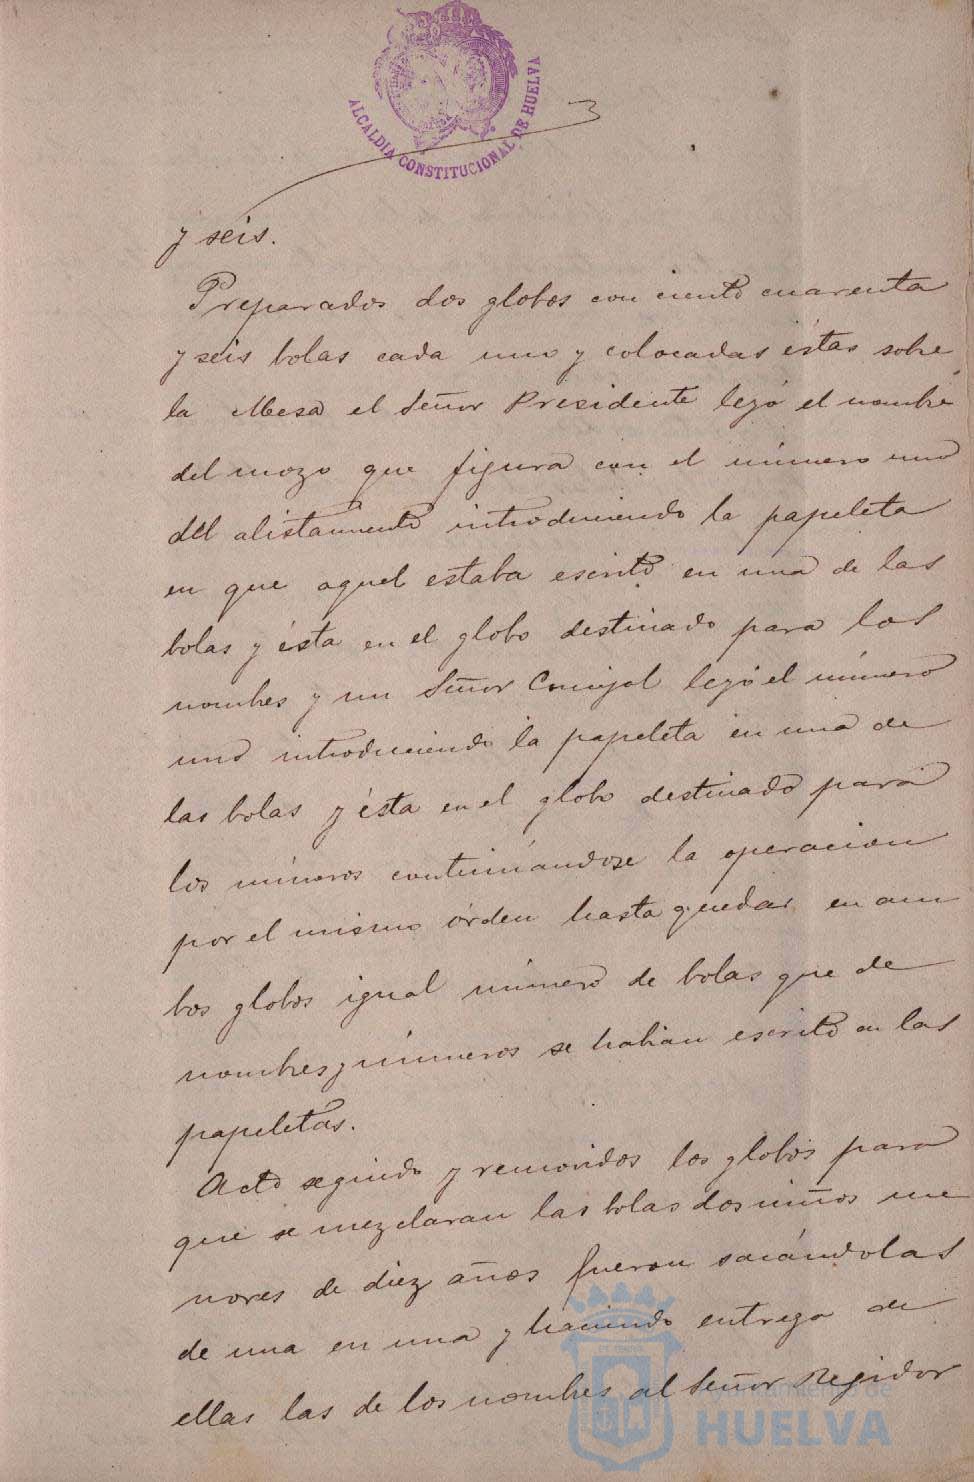 ALCALDIA CONSTITUCIONAL DE HUELVA
y seis.
Preparados dos globos con ciento cuarenta
y seis bolas cada uno y colocadas éstas sobre
la Mesa el Señor Presidente leyó el nombre
del mozo que figura con el número uno
del alistamiento introduciendo la papeleta
en que aquel estaba escrito en una de las
bolas y ésta en el globo destinado para los
nombres y un Señor Concejal leyó el número
uno introduciendo la papeleta en una de
las bolas y ésta en el globo destinado para
los números continuándose la operacion
por el mismo órden hasta quedar en am
bos globos igual número de bolas que de
nombres y números se habian escrito en las
papeletas.
Acto seguido y removidos los globos para
que se mezclaran las bolas dos niños me
nores de diez años fueron sacándolas
de una en una y haciendo entrega de
ellas las de los nombres al Señor Regidor
Ayuntamiento de
HUELVA